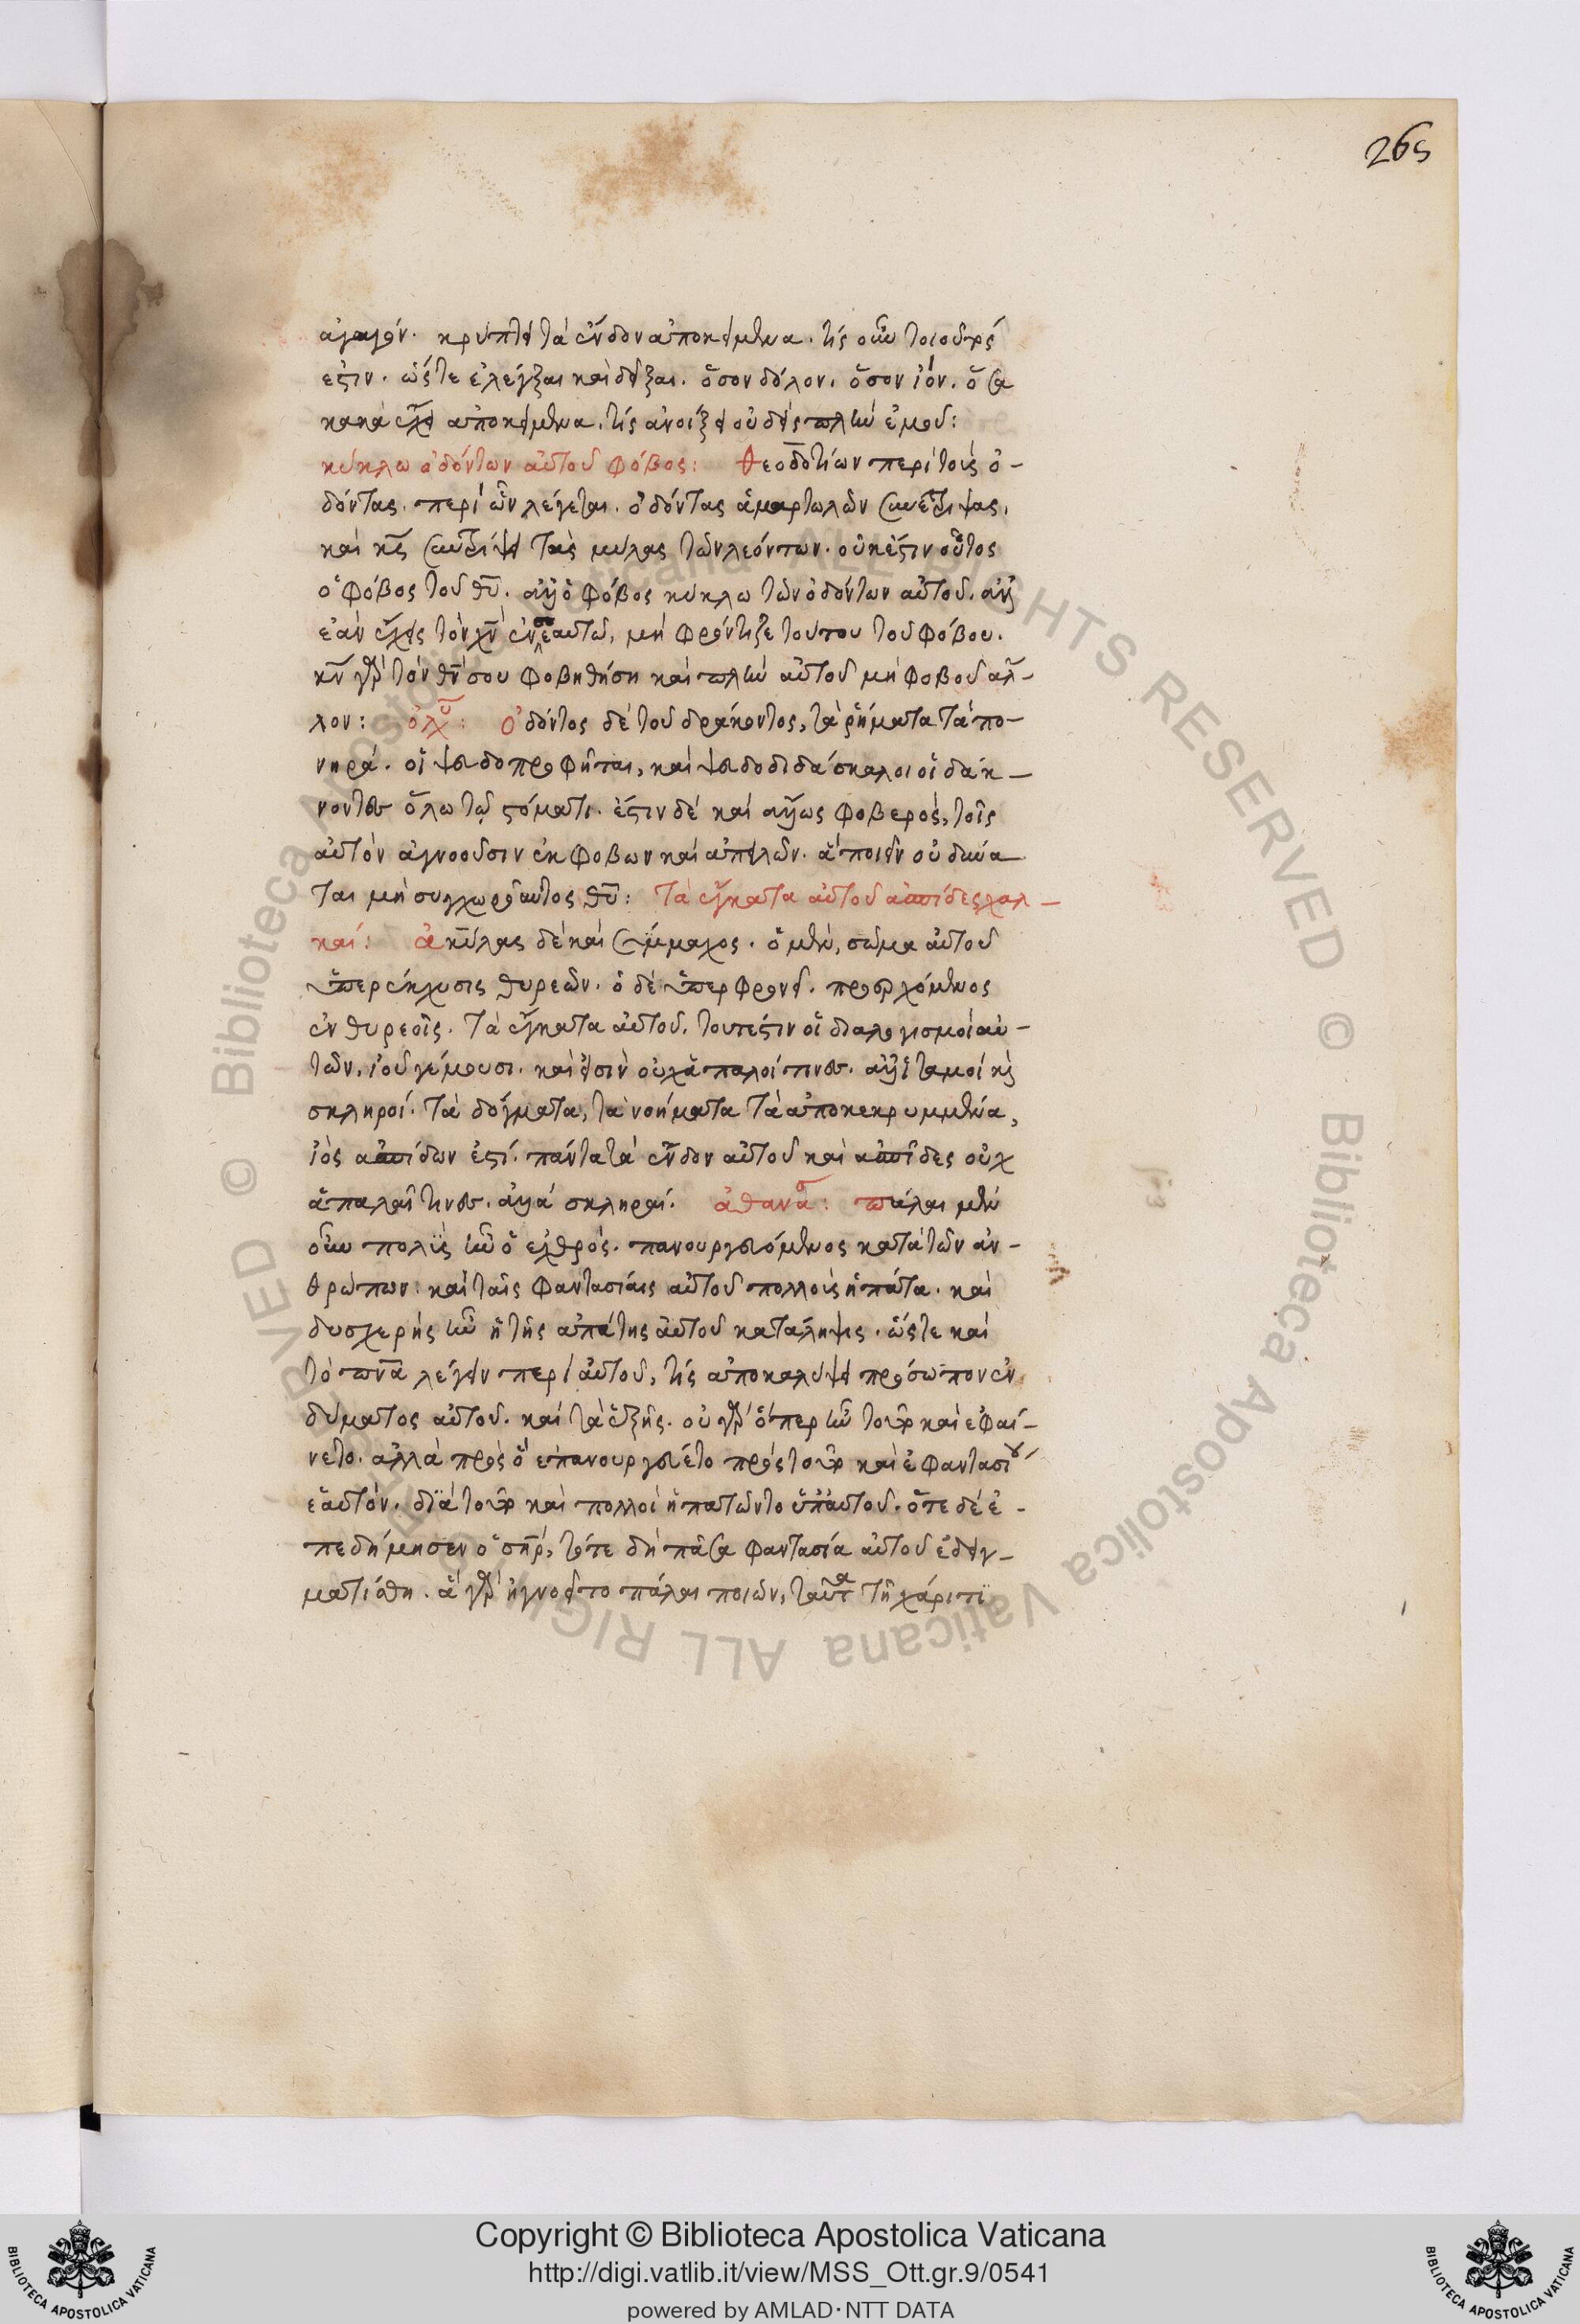 265
ἀγαγόν. κρύπτει τὰ ἔνδον ἀποκείμενα. τίς οὖν τοιοῦτός
ἐστιν. ὥστε ἐλέγξαι καὶ δεῖξαι. ὅσον δόλον. ὅσον ἰόν. ὅσα
κακὰ ἔχει ἀποκείμενα. τίς ἀνοίξει οὐδεὶς πλὴν ἐμοῦ:
κύκλω ὀδόντων αὐτοῦ φόβος: θεοδοτίων περὶ τοὺς ὀ-
δόντας. περὶ ὧν λέγεται. ὀδόντας ἁμαρτωλῶν συνέτριψας.
καὶ κς συντρίψει τὰς μύλας τῶν λεόντων. οὐκ ἔστιν οὗτος
ὁ φόβος τοῦ θυ. ἀλλ' ὁ φόβος κύκλω τῶν ὀδόντων αὐτοῦ. ἀλλ'
ἐὰν ἔχεις τὸν χν ἐν σεαυτῶ, μὴ φρόντιζε τούτου τοῦ φόβου.
κν γὰρ τὸν θν σου φοβηθήση καὶ πλὴν αὐτοῦ μὴ φοβοῦ ἄλ-
λον: ὀλυ: ὀδόντος δὲ τοῦ δράκοντος, τὰ ῥήματα τὰ πο-
νηρά. οἱ ψευδοπροφῆται, καὶ ψευδοδιδάσκαλοι οἱ δάκ-
νοντες ὅλω τῶ στόματι. ἔστιν δὲ καὶ ἄλλως φοβερός, τοῖς
αὐτὸν ἀγνοοῦσιν ἐκφοβῶν καὶ ἀπειλῶν. ἃ ποιεῖν οὐ δύνα
ται μὴ συγχωροῦντος θυ: Τὰ ἔγκατα αὐτοῦ ἀσπίδες χαλ-
καί: ἀκύλας δὲ καὶ σύμμαχος. ὁ μὲν, σῶμα αὐτοῦ
ὑπερέκχυσις θυρεῶν. ὁ δὲ ὑπερφρονεῖ. προσερχόμενος
ἐν θυρεοῖς. τὰ ἔγκατα αὐτοῦ. τουτέστιν οἱ διαλογισμοὶ αὐ-
τῶν. ἰοῦ γέμουσι. καὶ εἰσὶν οὐχ ἁπαλοί τινες. ἀλλ' ἰταμοὶ κὶ
σκληροί. τὰ δόγματα, τὰ νοήματα τὰ ἀποκεκρυμμένα,
ἰὸς ἀσπίδων ἐστί. πάντα τὰ ἔνδον αὐτοῦ καὶ ἀσπίδες οὐχ
ἁπαλαί τινες. ἀλλὰ σκληραί. ἀθανασ: πάλαι μὲν
οὖν πολὺς ἦν ὁ ἐχθρός. πανουργευόμενος κατὰ τῶν ἀν-
θρώπων: καὶ ταῖς φαντασίαις αὐτοῦ πολλοὺς ἠπάτα. καὶ
δυσχερὴς ἦν ἡ τῆς ἀπάτης αὐτοῦ κατάληψις. ὥστε καὶ
τὸ πνα λέγειν περὶ αὐτοῦ, τίς ἀποκαλύψει πρόσωπον ἐν
δύματος αὐτοῦ. καὶ τὰ ἑξῆς. οὐ γὰρ ὅπερ ἦν τοῦτο καὶ ἐφαί-
νετο. ἀλλὰ πρὸς ὃ ἐπανουργεύετο πρὸς τοῦτο καὶ ἐφαντασίου
ἑαυτόν. διὰ τοῦτο καὶ πολλοὶ ἠπατῶντο ὑπ' αὐτοῦ. ὅτε δὲ ἐ-
πεδήμησεν ὁ σηρ, τότε δὴ πᾶσα φαντασία αὐτοῦ ἐδειγ-
ματίσθη. ἃ γὰρ ἠγνοεῖτο πάλαι ποιῶν, ταῦτα τῆ χάριτι
Copyright © Biblioteca Apostolica Vaticana
http://digi.vatlib.it/view/MSS_Ott.gr.9/0541
powered by AMLAD·NTT DATA
BIBLIOTECA APOSTOLICA VATICANA
BIBLIOTECA APOSTOLICA VATICANA
© Biblioteca Apostolica Vaticana ALL RIGHTS RESERVED © Biblioteca Apostolica Vaticana ALL RIGHTS RESERVED